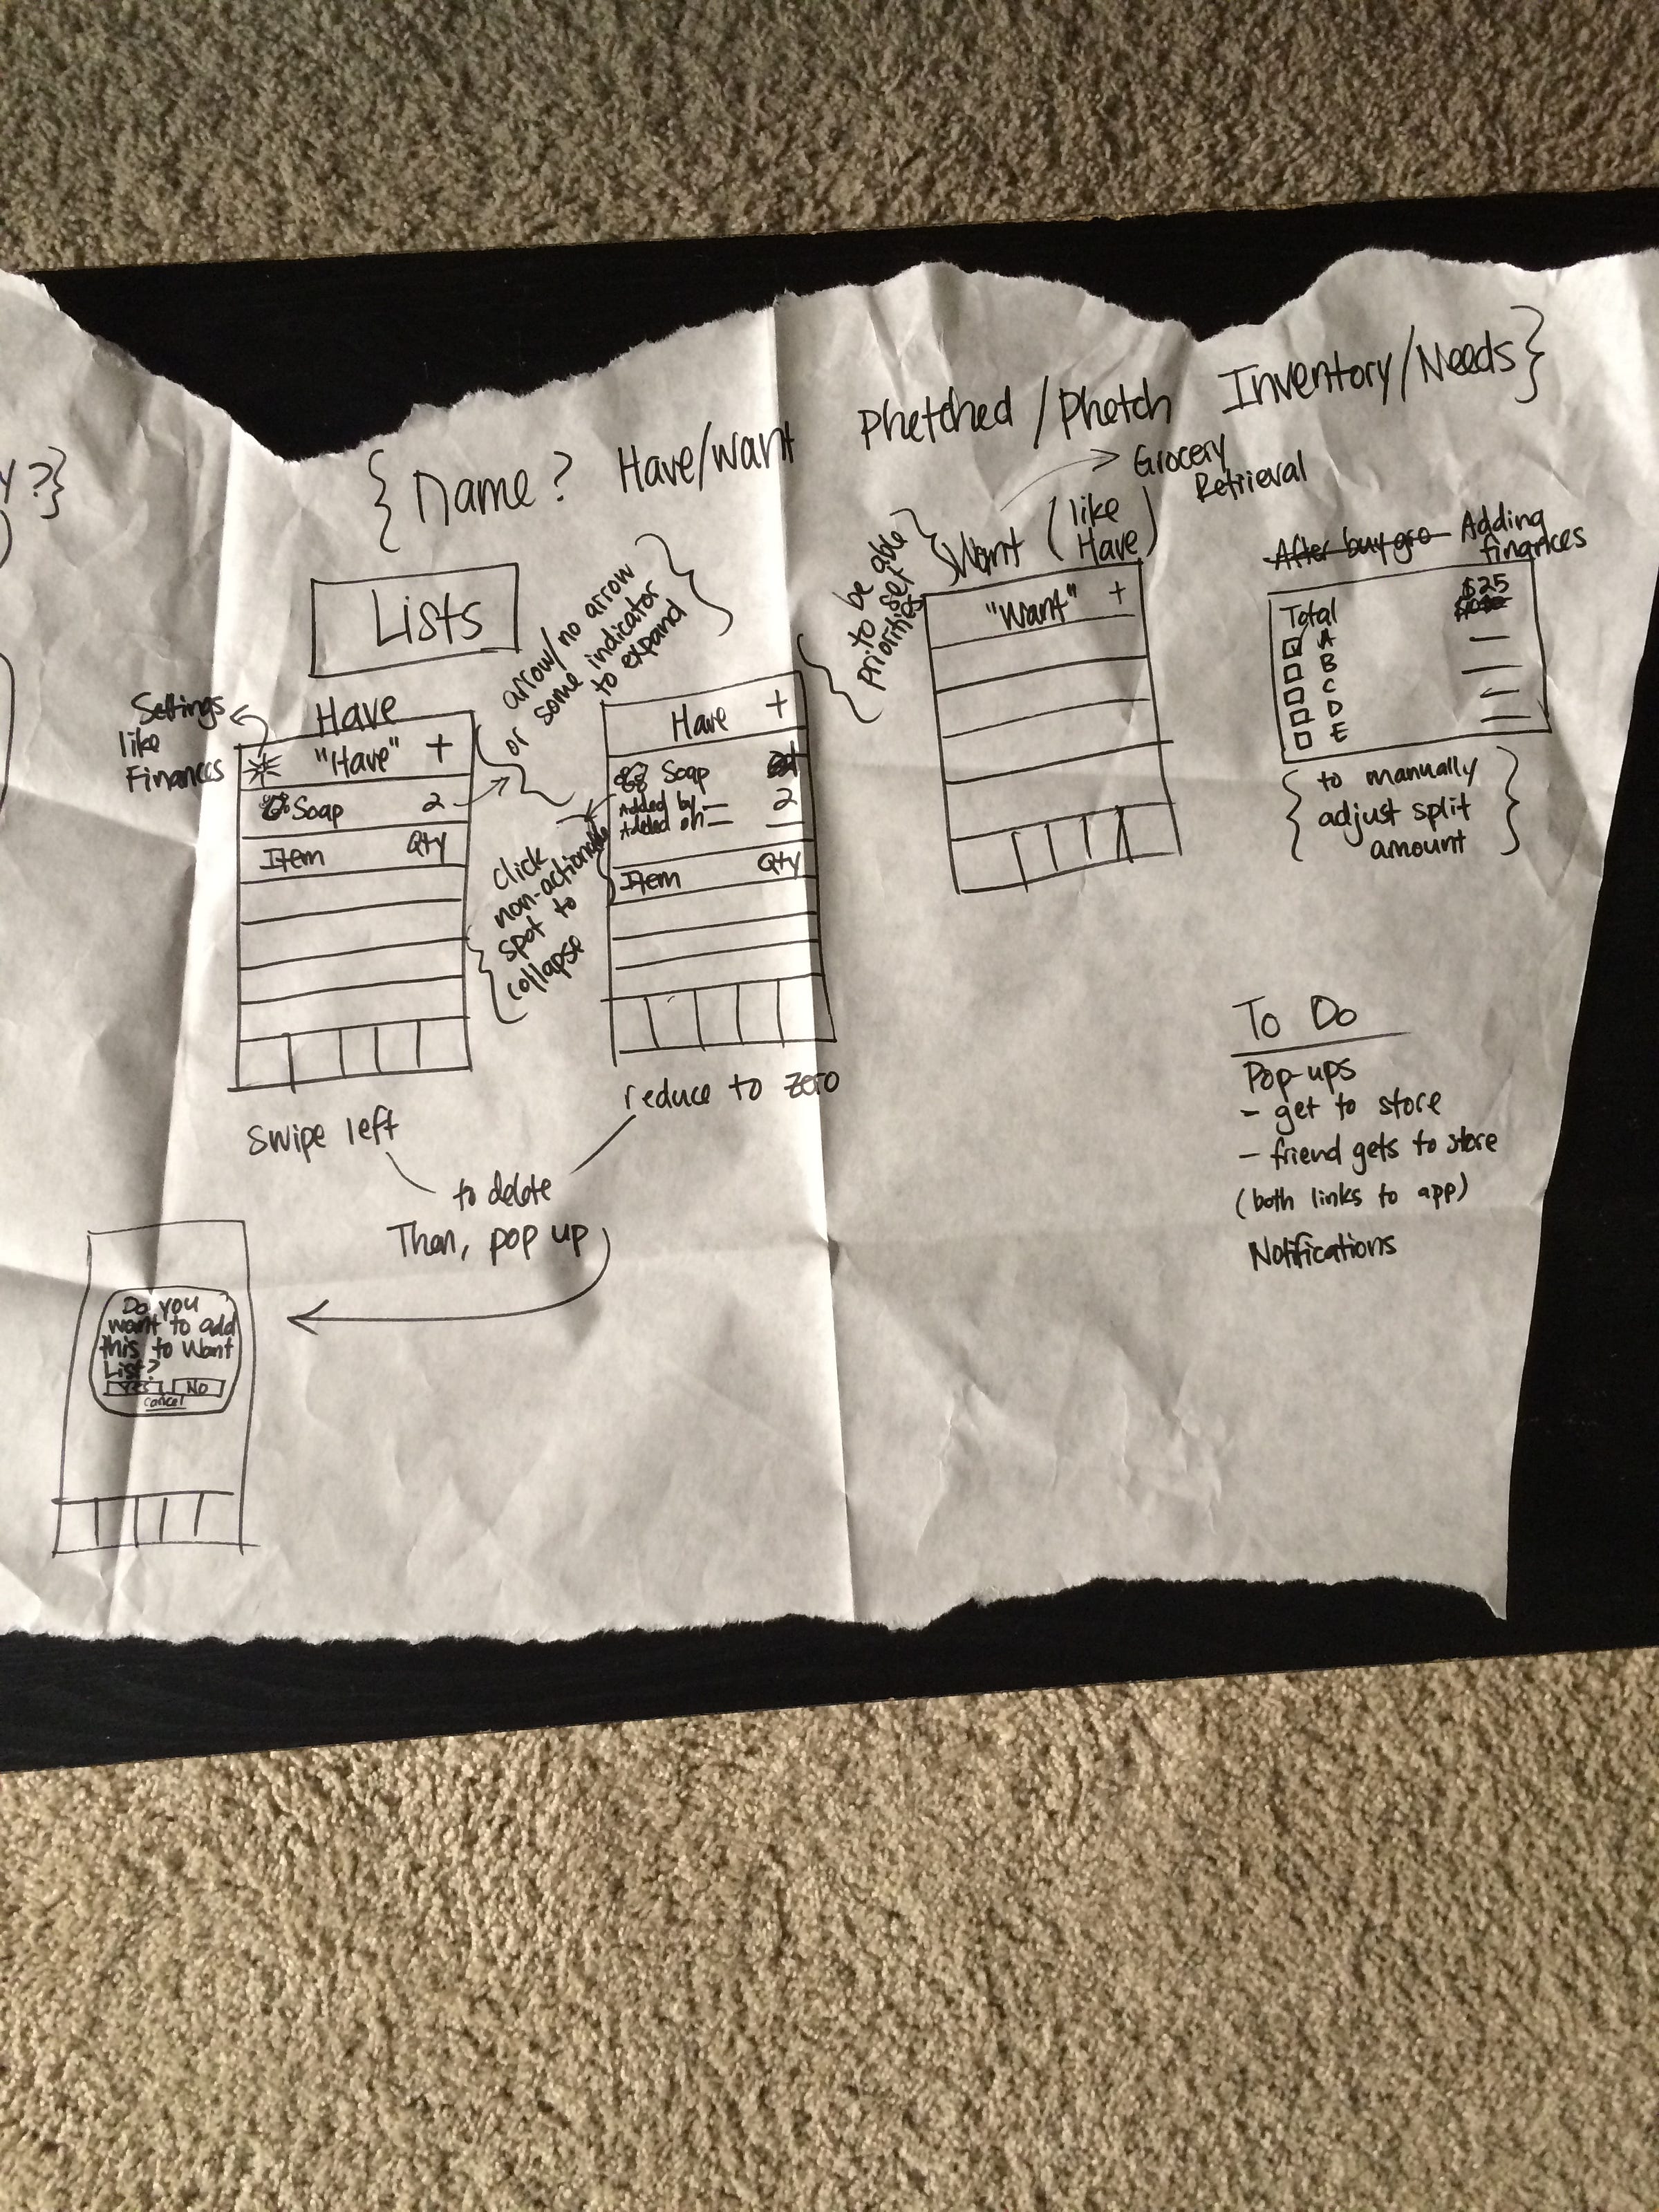 Y?}
{ Name? Have/want Phetched/Phetch Inventory/Needs}
Lists
arrow/no arrow
or some indicator
to expand
Settings
like
Finances
Have
"Have" +
Soap 2
Item Qty
click
non-actionable
spot to
collapse
Have +
Soap
Added by — 2
Added on —
Item Qty
to be able
to set
priorities
Want (like Have)
Grocery
Retrieval
"Want" +
After buy gro Adding
finances
Total $25
A —
B —
C —
D —
E
{ to manually
adjust split
amount }
Swipe left
reduce to zero
to delete
Then, pop up
Do you
want to add
this to Want
List?
Yes No
cancel
To Do
Pop-ups
- get to store
- friend gets to store
(both links to app)
Notifications